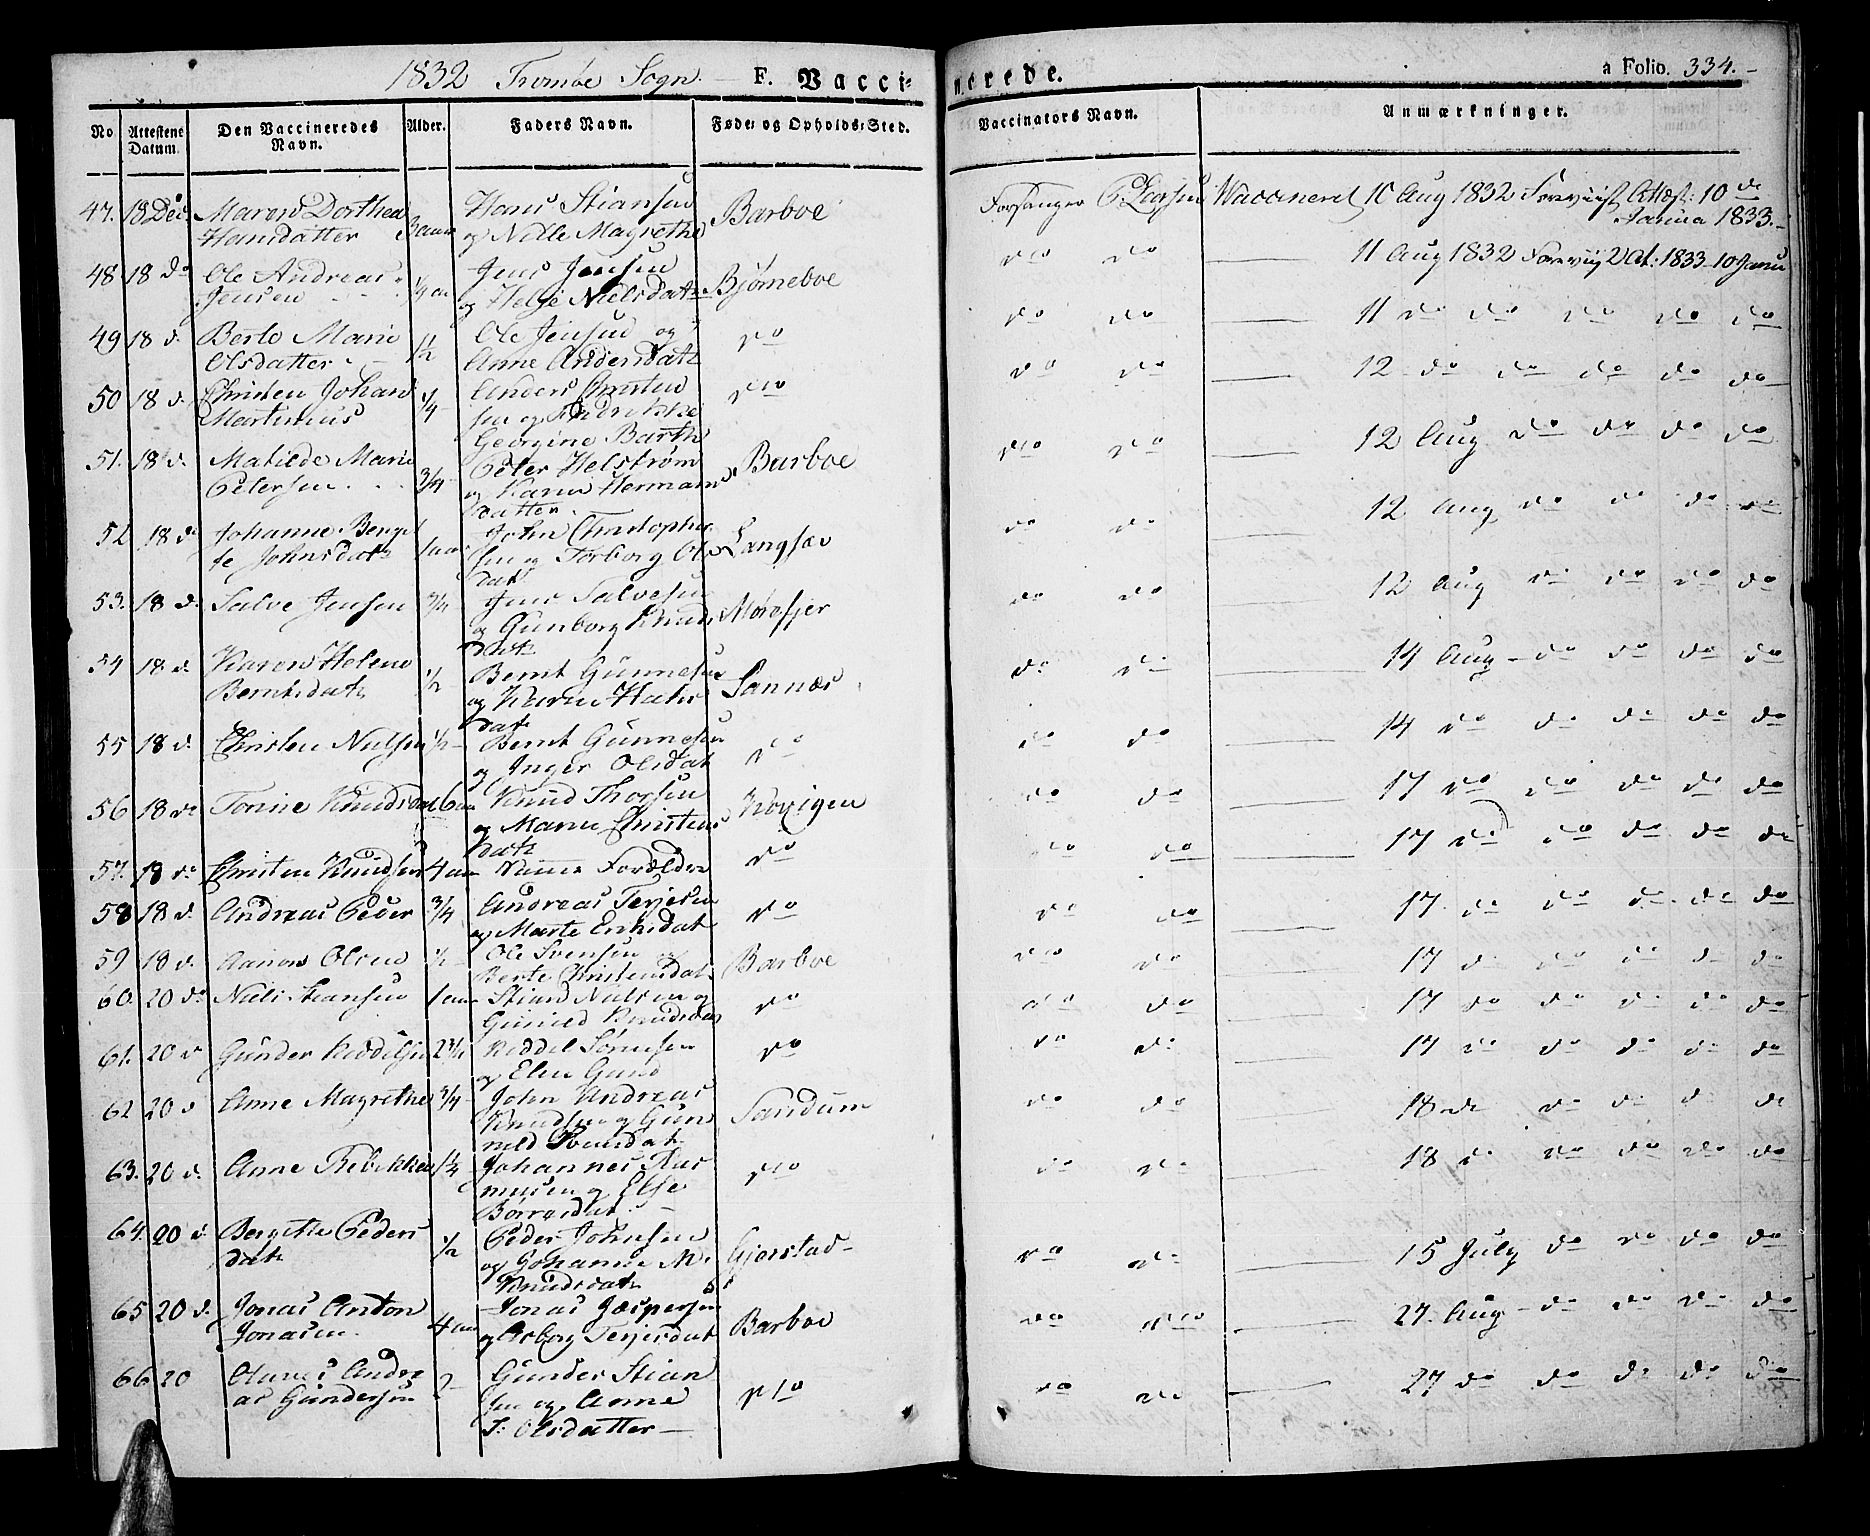 1832 Tromøe Sogn. — F. Vacci-
nerede.
a Folio. 334.
No
Attestens Datum
Den Vaccineredes Navn.
Alder.
Faders Navn.
Føde- og Opholds-Sted.
Vaccinators Navn.
Anmærkninger.
47. 18 Dec. Maren Dorthea 3 aar Hans Stiansen Barboe Forsanger P. Vaccineret 10 Aug 1832 Forevist Attest: 10 de
Hansdatter og Nille Magrethe Janua 1833.
48 18 do Ole Andreas 1/4 aar Jens Jensen Bjørneboe do do 11 Aug 1832 1833 10 Janu
Jensen og Helje Nielsdatr
49 18 d. Berte Marie 1/2 Ole Jensen og do do do 11 do do do do do
Olsdatter Anne Andersdatr
50 18 d. Christen Johan 1/4 Anders Christen do do do 12 do do do do do
Martinius sen og Fredrikke
Georgine Barth
51. 18 d. Matilde Marie 3/4 Peter Helstrøm Barboe do do 12 Aug do do do do
Petersen og Karen Hermans
datter.
52 18 d. Johanne Berge 1 aar John Christopher Langsæv do do 12 Aug do do do do
te Johnsdatr sen og Torborg Ols
dat
53. 18 d. Salve Jensen 3/4 Jens Salvesen Mørefjer do do 12 Aug do do do do
og Gunborg Knuds
datr
54 18 d. Karen Helene 1/2 Bernt Gunnesen Sannæs do do 14 Aug do do do do
Berntsdatr og Karen
dat
55 18 d. Christen Nielsen 1/2 Bernt Gunnesen do do do 14 do do do do do
og Inger Olsdat
56 18 do Tonne Knudsdat 6 aar Knud Thorsen Kovigen do do 17 do do do do do
og Maren Christens
datr
57. 18 do Christen Knudsen 4 aar Samme Forældre do do do 17 do do do do do
58 18 d. Andreas Peder 3/4 Andreas Terjesen do do do 17. do do do do do
og Marte Eriksdat
59 18 d. Aanon Olsen 1/2 Ole Svensen Barboe do do 17 do do do do do
Berte Christensdat
60. 20 do Niels Stiansen 1 aar Stian Nielsen og do do do 17 do do do do do
Gunild Knudsdat
61. 20 d Gunder Keddelsen 2 3/4 Keddel Sørensen do do do 17 do do do do do
og Elen Gund
62 20 d Anne Magrethe 3/4 John Andreas Sandum do do 18 do do do do do
Knudsen og Gun
nild Svendsdat
63. 20 d. Anne Rebekka 1 1/4 Johannes Ras do do do 18 do do do do do
musen og Else
Børresdat
64. 20 d. Bergitte Peders 1/2 Peder Johnsen Gjerstad do do 15 July do do do do
datr og Johanne M.
Knudsdatr
65 20 d. Jonas Anton 4 aar Jonas Jespersen Barboe do do 27. Aug do do do do
Jonasen og Asborg Terjesdat
66 20 Andre 2 Gunder Stian do do do 27 do do do do do
as Gundersen sen og Anne
T: Olsdatter